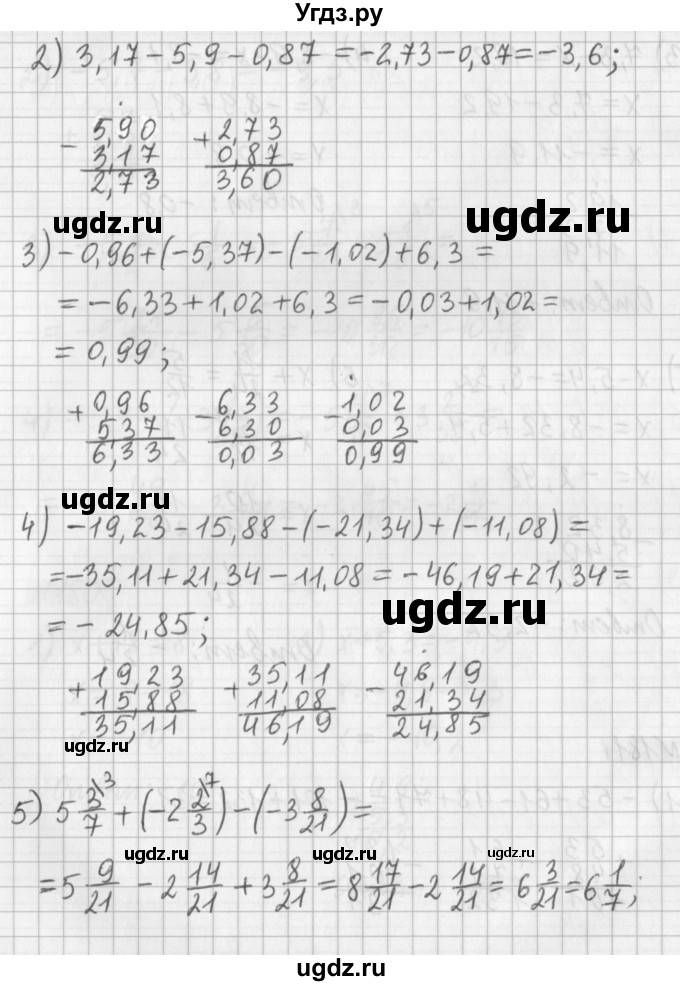 Угдз.ру
2) 3,17 - 5,9 - 0,87 = -2,73 - 0,87 = -3,6;
- 5,90 + 2,73
3,17 0,87
2,73 3,60
ugdz.ru ugdz.ru
3) -0,96 + (-5,37) - (-1,02) + 6,3 =
= -6,33 + 1,02 + 6,3 = -0,03 + 1,02 =
= 0,99;
+ 0,96 - 6,33 - 1,02
5 37 6,30 0,03
6,33 0,03 0,99
ugdz.ru
4) -19,23 - 15,88 - (-21,34) + (-11,08) =
= -35,11 + 21,34 - 11,08 = -46,19 + 21,34 =
ugdz.ru
= -24,85;
+ 19,23 + 35,11 - 46,19
15,88 11,08 21,34
35,11 46,19 24,85
ugdz.ru
5) 5 3/7 \3 + (-2 2/3 \7) - (-3 8/21) =
ugdz.ru ugdz.ru ugdz.ru
= 5 9/21 - 2 14/21 + 3 8/21 = 8 17/21 - 2 14/21 = 6 3/21 = 6 1/7;
ugdz.ru